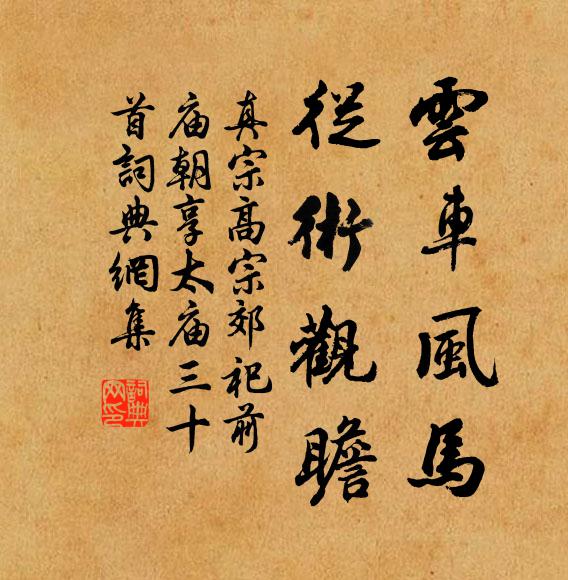 雲車風馬
從術觀瞻
真宗高宗郊祀前
庙朝享太庙三十
首詞典網集
詞典網印